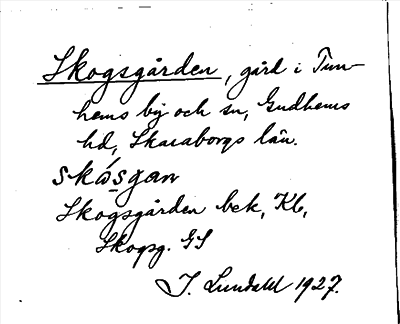 Skogsgården, gård i Tun-
hems by och sn, Gudhems
hd, Skaraborgs län.
skåsgan
Skogsgården bek, Kb,
Skogsg. GS
I. Lundahl 1927.